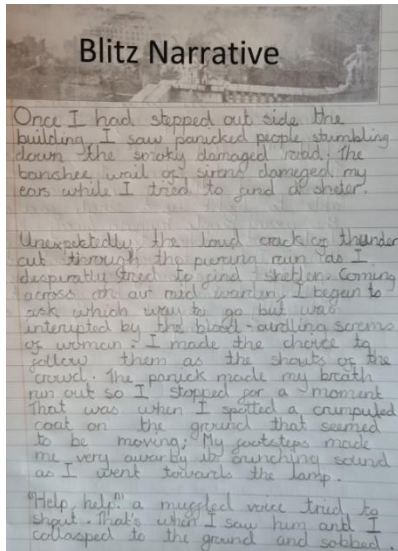 Blitz Narrative
Once I had stepped out side the
building I saw panicked people stumbling
down the smoky damaged road. The
banshee wail of sirens dameged my
ears while I tried to find a shelter.
Unexpectedly the loud crack of thunder
cut through the piering rain as I
despiratly tried to find shelter. Coming
across an air raid warden, I began to
ask which way to go but was
interupted by the blood-curdling screms
of woman. I made the choice to
follow them as the shouts of the
crowd. The panick made my breath
run out so I stopped for a moment
That was when I spotted a crumpuled
coat on the ground that seemed
to be moving. My footsteps made
me very the crunching sound
as I went towards the lamp.
"Help, help!" a muggled voice tried to
shout. That's when I saw him and I
collasped to the ground and sobbed.